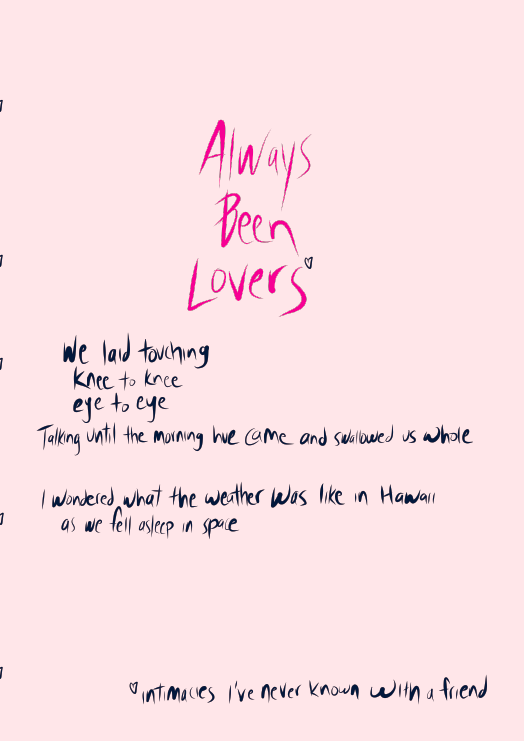 Always
Been
Lovers♡
We laid touching
knee to knee
eye to eye
Talking until the morning hue came and swallowed us whole
I wondered what the weather was like in Hawaii
as we fell asleep in space
♡intimacies I've never known with a friend